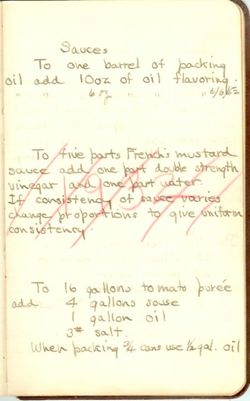 Sauces
To one barrel of packing
oil add 10oz of oil flavoring.
" " " 6 oz " " " 6/6/52
To five parts French's mustard
sauce add one part double strength
vinegar and one part water.
If consistency of sauce varies
change proportions to give uniform
consistency.
To 16 gallons tomato purée
add 4 gallons souse
1 gallon oil
3# salt.
When packing 3/4 cans use 1/2 gal. oil